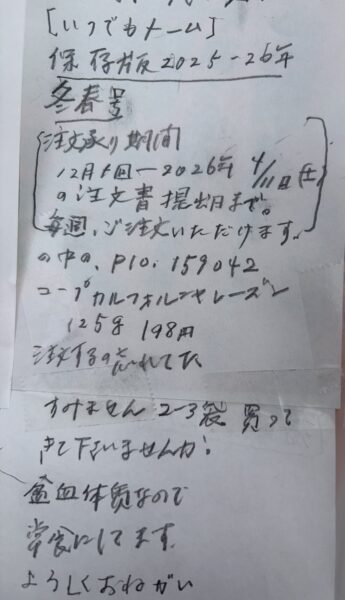 [いつでもトーム]
保存版2025-26年
冬春号
注文承り期間
12月5回ー2026年4/11日(土)
の注文書提出日まで。
毎週、ご注文いただけます。
の中の、P10. 159042
コープカルフォルニヤレーズン
125g 198円
注文するの忘れてた
すみません 2-3袋 買って
きて下さいませんか!
貧血体質なので
常食にしてます。
よろしくおねがい